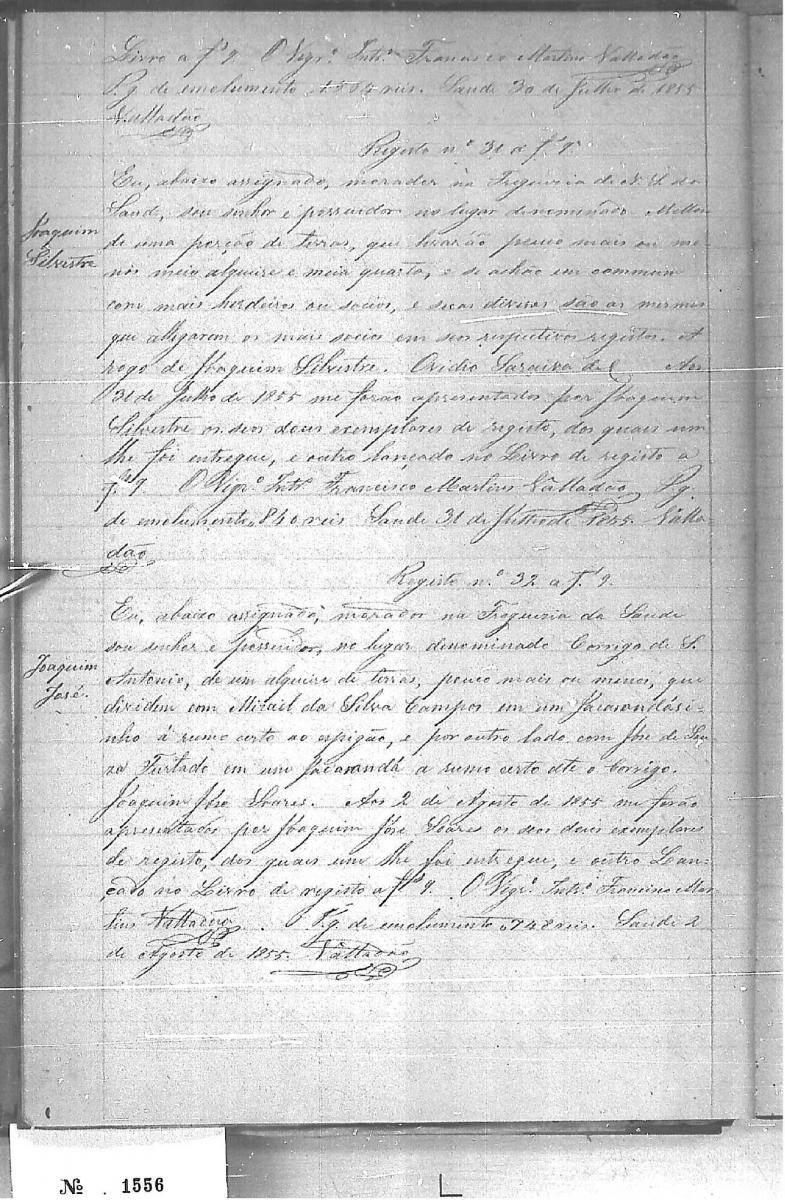 Livro a f.s 9. O Vigr.o Int.o Francisco Martins Valladão
Pg. de emolumento 1$504 reis. Saude 30 de Julho de 1855
Valladão
Registo n.o 31 a f.s 9.
Joaquim
Silvestre
Eu, abaixo assignado, morador na Freguezia de N. S. da
Saud, sou senhor e possuidor no lugar denominado
de uma porção de terras, que levarão pouco mais ou me-
nos meio alqueire e meia quarta, e se achão em commum
com mais herdeiros ou socios, e suas divizas são as mesmas
que allegarem os mais socios em seos respectivos registos. A
rogo de Joaquim Silvestre. Ovidio Saraiva de C Aos
31 de Julho de 1855 me forão apresentados por Joaquim
Silvestre os seos dous exemplares de registo, dos quais um
lhe foi entregue, e outro lançado no Livro de registo a
f.s 9. O Vigr.o Int.o Francisco Martins Valladão Pg.
de emolumento, 840 reis Saude 31 de Julho de 1855. Valla-
dão
Registo n.o 32 a f.s 9.
Joaquim
José.
Eu, abaixo assignado, morador na Freguezia da Saude
sou senhor e possuidor, no lugar denominado Corrigo de S.
Antonio, de um alqueire de terras, pouco mais ou menos, que
dividem com Micail da Silva Campos em um Jacarandási-
nho á rumo certo ao espigão, e por outro lado com José de Sou-
za Furtado em um Jacarandá a rumo certo ate o Corrigo.
Joaquim José Soares. Aos 2 de Agosto de 1855 me forão
apresentados por Joaquim José Soares os seos dous exemplares
de registo, dos quais um lhe foi entregue, e outro Lan-
çado no Livro de registo a f.s 9. O Vigr.o Int.o Francisco Mar-
tins Valladão. Pg. de emolumento 748 reis. Saude 2
de Agosto de 1855. Valladão
№ . 1556